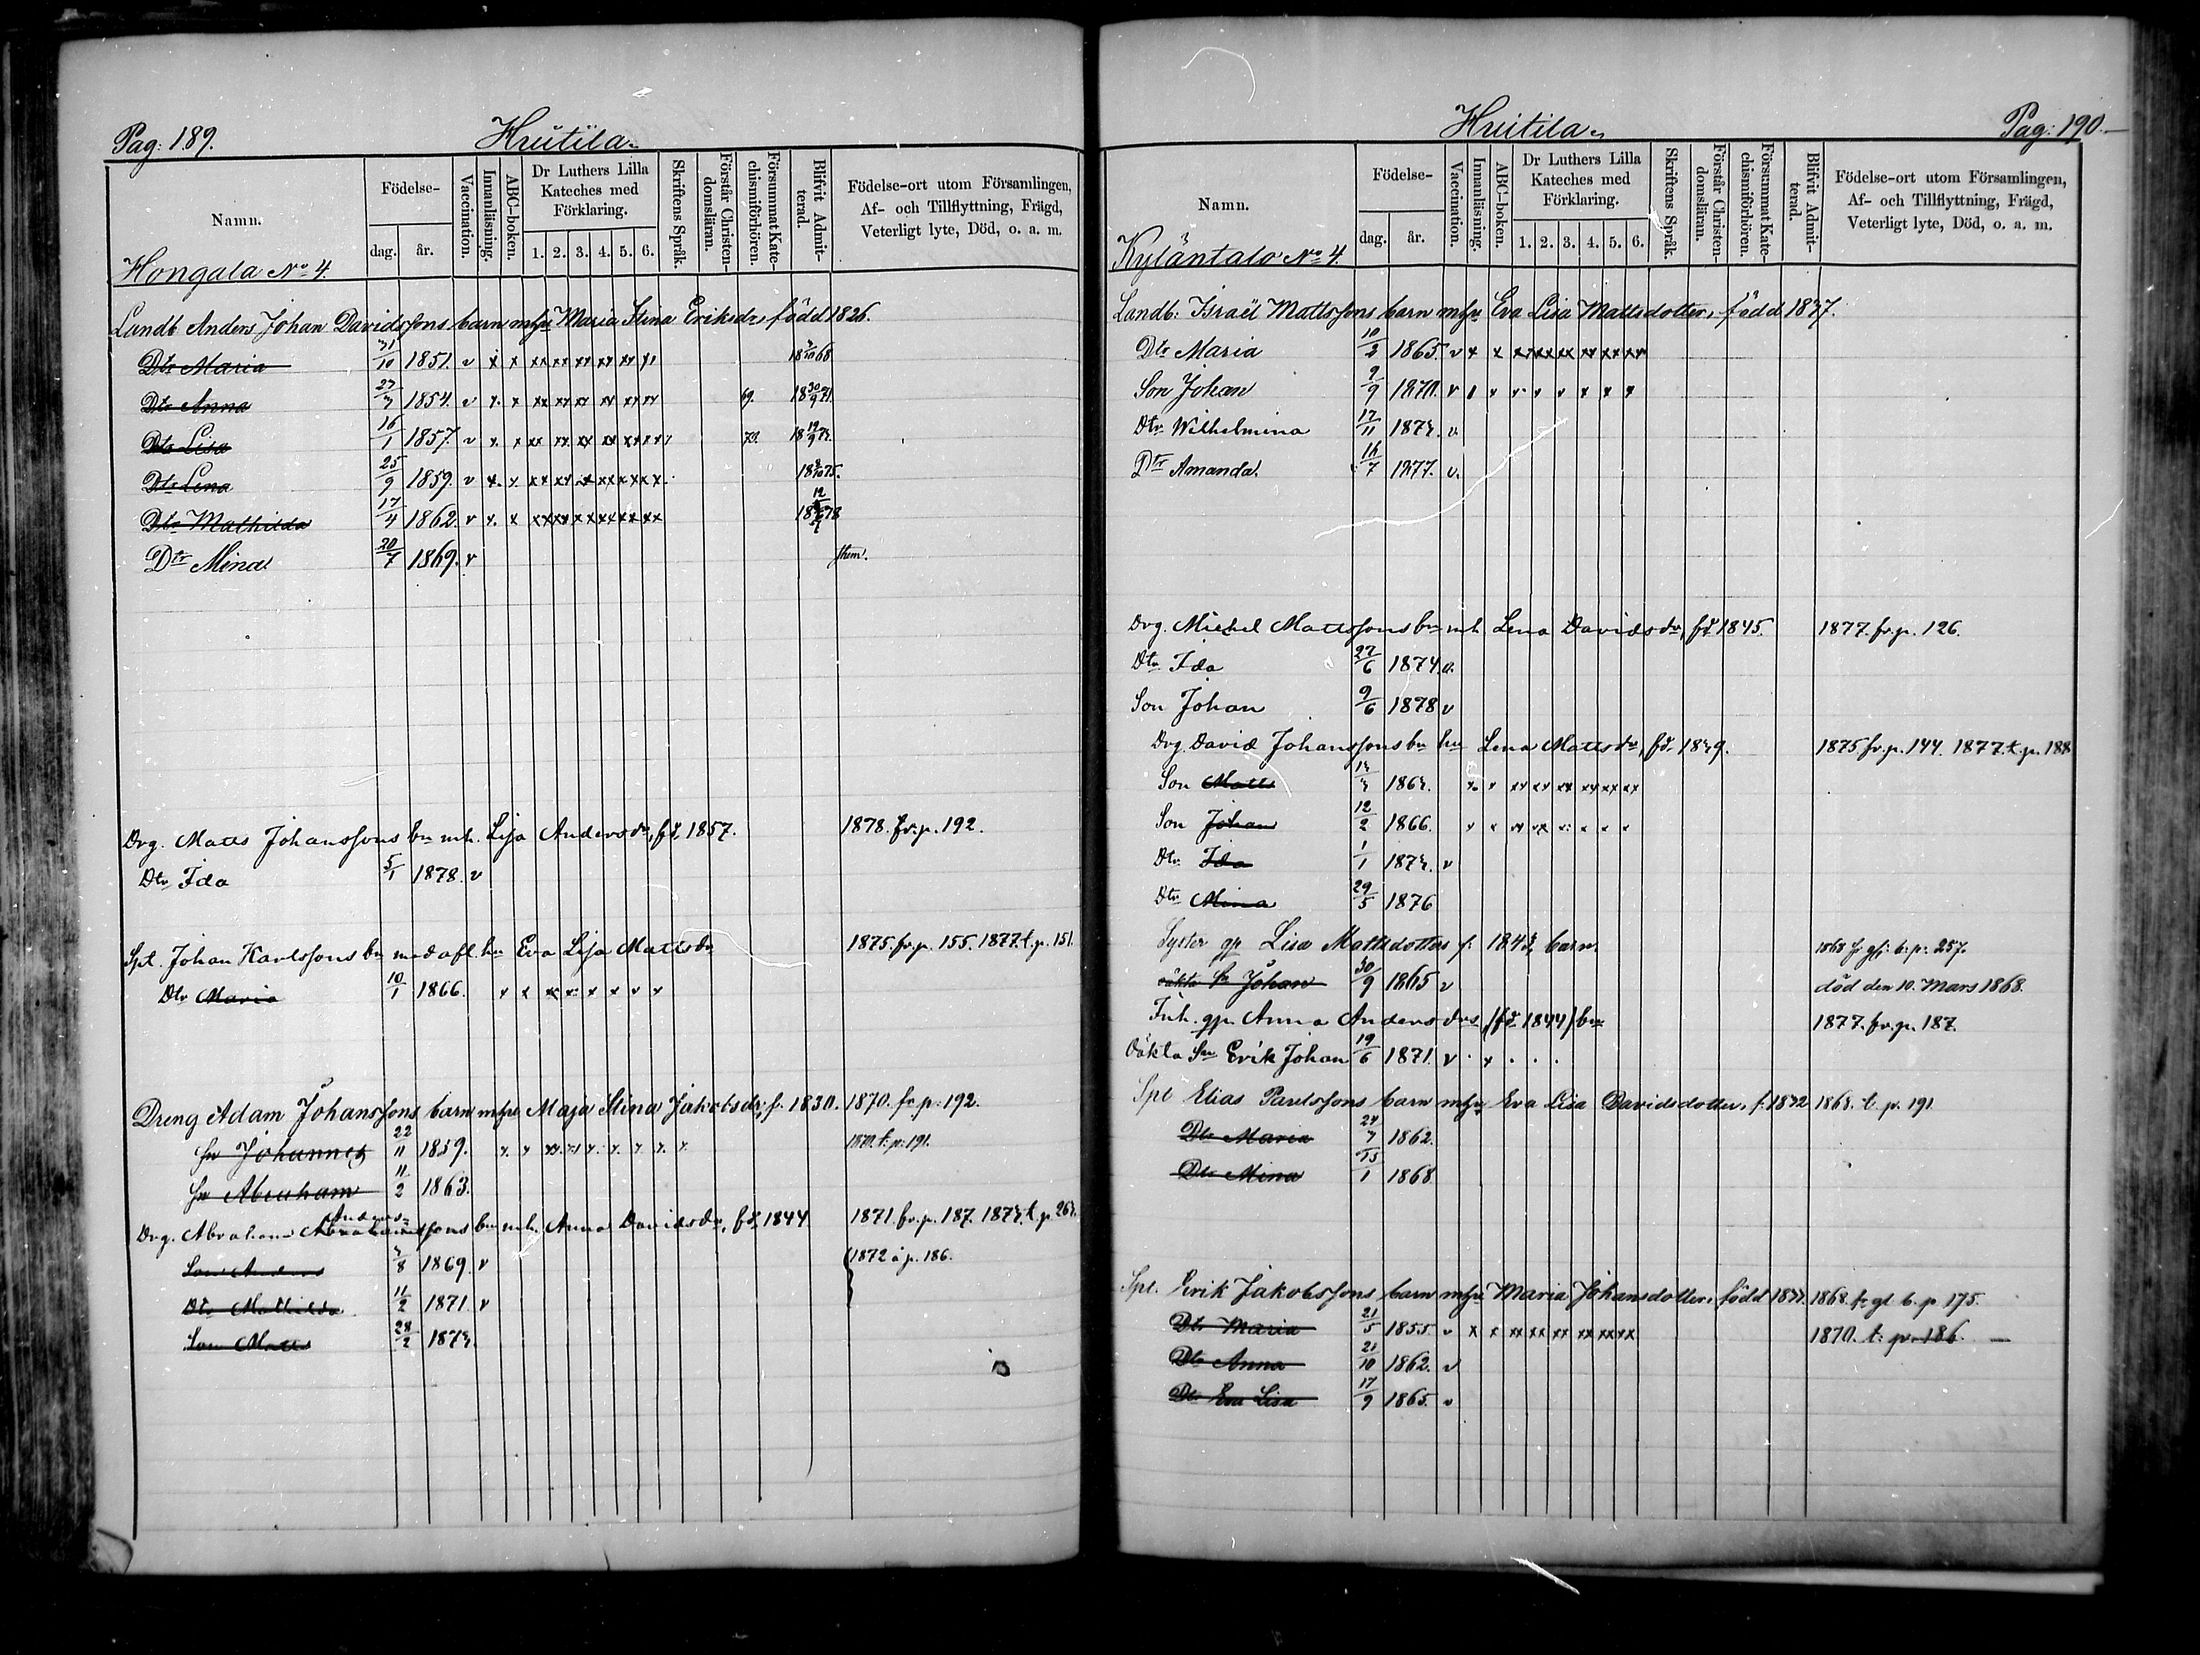 Pag: 189. Hruitila
Namn. Födelse- dag. år. Vaccination. Innanläsning. ABC-boken. Dr Luthers Lilla Kateches med Förklaring. 1. 2. 3. 4. 5. 6. Skriftens Språk. Förstår Christendomsläran. Försummat Katechismiförhören. Blifvit Admitterad. Födelse-ort utom Församlingen, Af- och Tillflyttning, Frägd, Veterligt lyte, Död, o. a. m.
Hongala No 4
Landb Anders Johan Davidssons barn mhu Maria Stina Eriksdr, född 1826.
Dtr Maria 31/10 1851. v x x xx xx xx xx xx
Dtr Anna 1854. v x x xx xx xx xx xx xx 69. 18 30/9 71
Dtr Lisa 16/1 1857. v x x xx xx xx xx xx
Dtr Lena 25/9 1859. v x x xx xx xx xx xx xx 75.
Dtr Mathilda 17/4 1862. v x x xx xx xx xx xx xx 78
Dtr Mina 20/7 1869. v
Drg. Matts Johanssons bn mh. Lisa Andersdr, fd. 1857. 1878. fr. p. 192.
Dtr Ida 5/1 1878. v
Spt. Johan Karlssons bn med afl. hu Eva Lisa Mattsdr 1875. fr. p. 155. 1877. t. p. 151.
Dtr Maria 10/1 1866. x x xx x x x x x
Dreng Adam Johanssons barn mhu Maja Stina Jakobsdr, f. 1830. 1870. fr. p. 192.
sn Johannes 22/11 1859. 1870. t. p. 191.
sn Abraham 11/2 1863.
Anders-
Drg. Abraham Abrahamssons bn mh. Anna Davidsdr, fd. 1844 1871. fr. p. 187. t. p.
Son Anders 1869. v 1872 å p. 186.
Dtr Mathilda 11/2 1871. v
Son Matts 28/2
Hruitila Pag: 190.
Namn. Födelse- dag. år. Vaccination. Innanläsning. ABC-boken. Dr Luthers Lilla Kateches med Förklaring. 1. 2. 3. 4. 5. 6. Skriftens Språk. Förstår Christendomsläran. Försummat Katechismiförhören. Blifvit Admitterad. Födelse-ort utom Församlingen, Af- och Tillflyttning, Frägd, Veterligt lyte, Död, o. a. m.
Kyläntalo No 4.
Landb: Israël Mattssons barn mhu Eva Lisa Mattsdotter, född 1837.
Dtr Maria 1865. v x x xx xx xx xx xx xx
Son Johan 2/9 1870. v
Dtr Wilhelmina 17/11 v.
Dtr Amanda. 16/7 1877. v.
Drg. Michel Mattssons bn mh Lena Davidsdr, fd. 1845. 1877. fr. p. 126.
Dtr Ida 27/6 1874. v.
Son Johan 9/6 1878 v
Drg. David Johanssons bn hu Lena Mattsdr, fd. 1875 fr. p. 144. 1877. t. p. 188
Son Matts x x xx xx xx xx xx xx
Son Johan 12/2 1866.
Dtr Ida 1/1 v
Dtr Mina 29/5 1876
Syster gp Lisa Mattsdotters barn
oäkta sn Johan 30/9 1865 v död den 10. Mars 1868.
Inh. gp. Anna Andersdrs (fd 1844) bn 1877. fr. p. 187.
Oäkta Sn Erik Johan 19/6 1871. v
Spt Elias Paulssons barn mhu Eva Lisa Davidsdotter, f. 1832 1868. t. p. 191
Dtr Maria 1862.
Dtr Mina 1868
Spt. Erik Jakobssons barn mhu Maria Johansdotter, född 1868. fr. gl. b. p. 175.
Dtr Maria 21/5 1855. v x x xx xx xx xx xx xx 1870. t. p. 186.
Dtr Anna 21/10 1862. v
Dtr Eva Lisa 17/9 1865. v